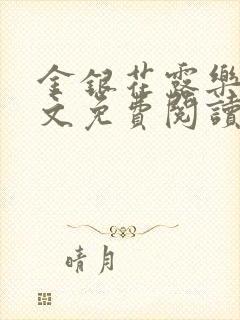 金銀花露樂
文免費閱讀
晴月